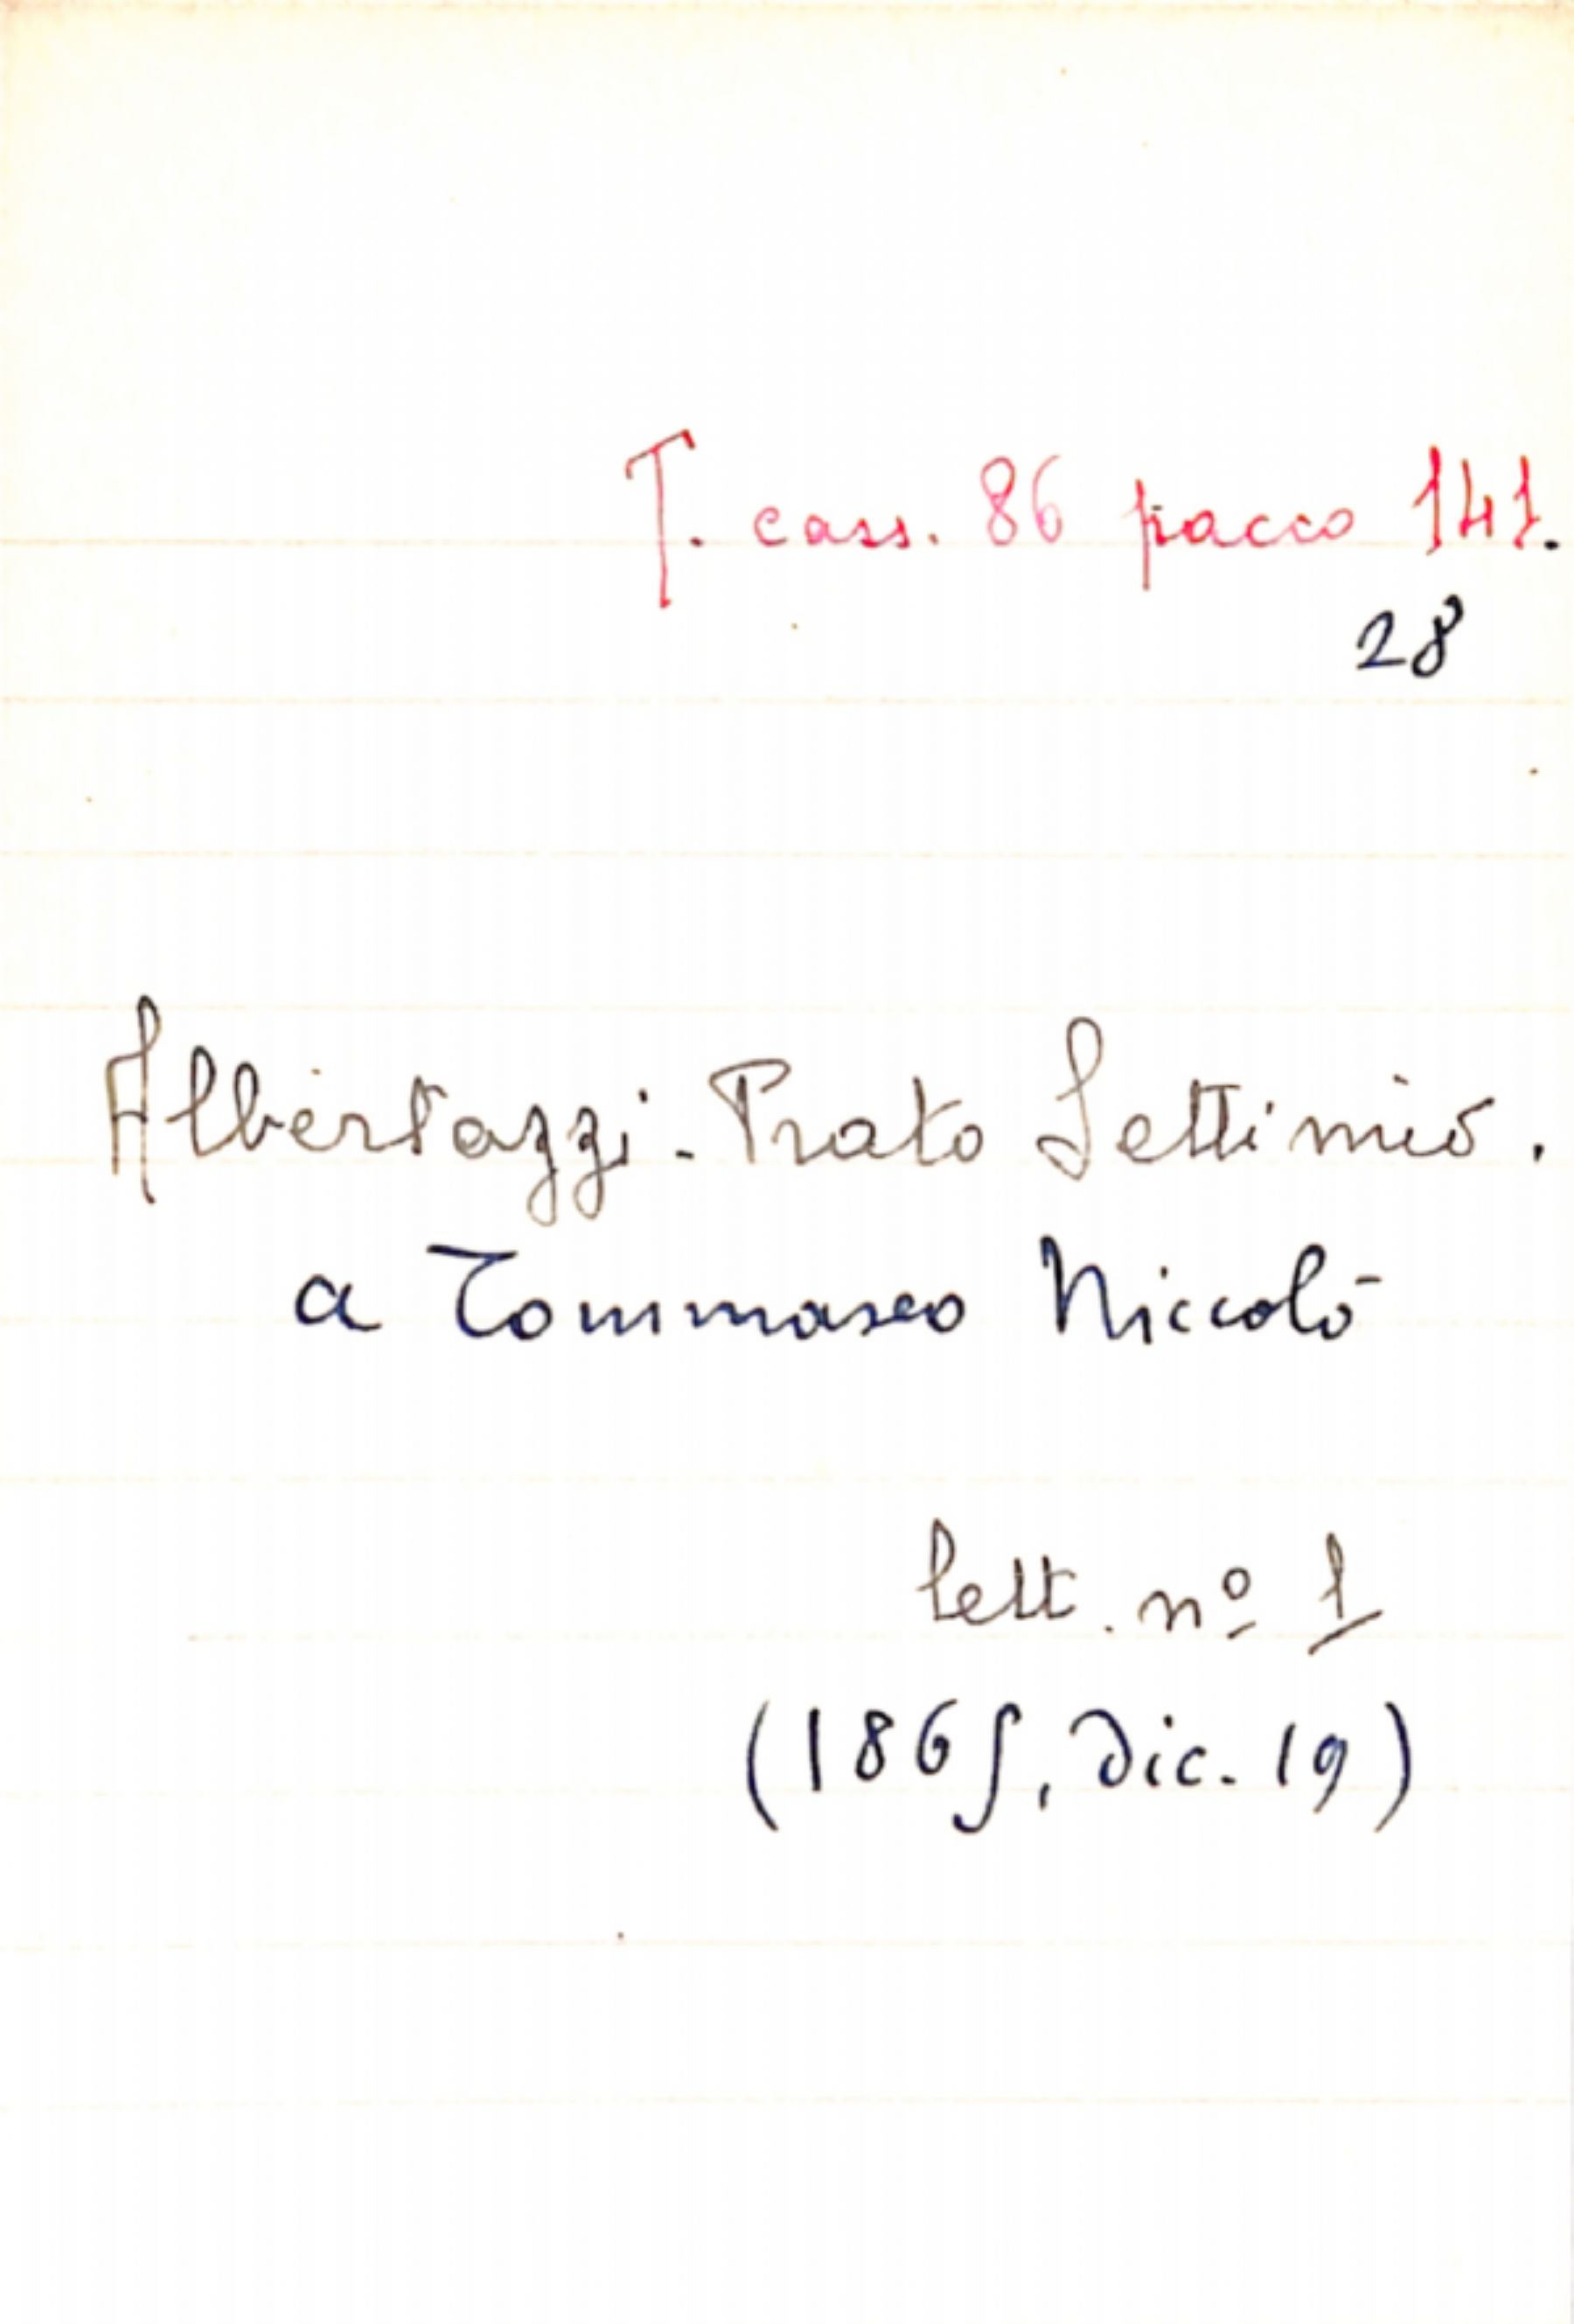 T. cass. 86 pacco 141.
28
Albertazzi - Prato Settimio.
a Tommaseo Niccolò
lett. nº 1
(1865, dic. 19)